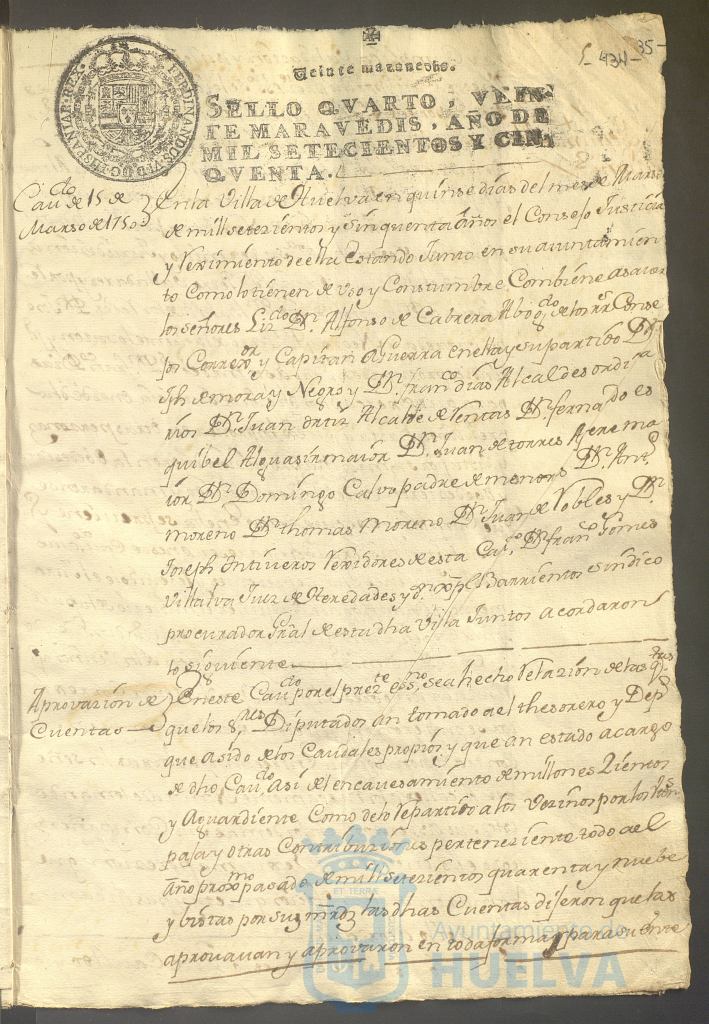 5- 434- 35-
Veinte maravedis.
SELLO QVARTO, VEIN-
TE MARAVEDIS, AÑO DE
MIL SETECIENTOS Y CIN-
QVENTA.
FERDINANDUS VI D G HISPANIAR REX
Cavdo de 15 de
Marso de 1750
En la Villa de Huelva en quinse dias del mes de Marso
de mill setezientos y sinquenta años el Consejo Justicia
y Reximiento de ella estando Junto en su ayuntamien
to Como lo tienen de uso y Constumbre Combiene a saver
los señores Lizdo Dn Alfonso de Cabrera Abogdo de los rrs Conse
jos Correxor y Capitan a Guerra en ella y su partido Dn
Jph de mora y Negro y Dn franco dias Alcaldes ordina
rios Dn Juan ortiz Alcalde de Rentas Dn fernando es
quibel Alguasil maior Dn Juan de torres Alferes ma
ior Dn Domingo Calvo padre de menores Dn Anto
moreno Dn thomas Moreno Dn Juan de Robles y Dn
Joseph Ontiveros Rexidores de esta Casa Dn franco Gomes
Villalva Juez de Heredades y Dn xptl Barrientos sindico
procurador Gral de esta dha Villa Juntos acordaron
lo siguiente
Aprovazion de
Cuentas
En este Cavdo por el prezte essno se a hecho Relazion de las qtas
que los Sres Diputados an tomado a el thesorero y Depo
que a sido de los Caudales propios y que an estado a cargo
de dho Cavdo Asi del encavesamiento de millones Zientos
y Aguardiente Como de lo Repartido a los Vezinos por los
paja y otras Contribuziones perteneziente todo a el
año proxmo pasado de mill setezientos quarenta y nuebe
y bistas por sus mrdz las dhas Cuentas dijeron que las
aprovavan y aprovaron en toda forma y para su
Ayuntamiento de
HUELVA